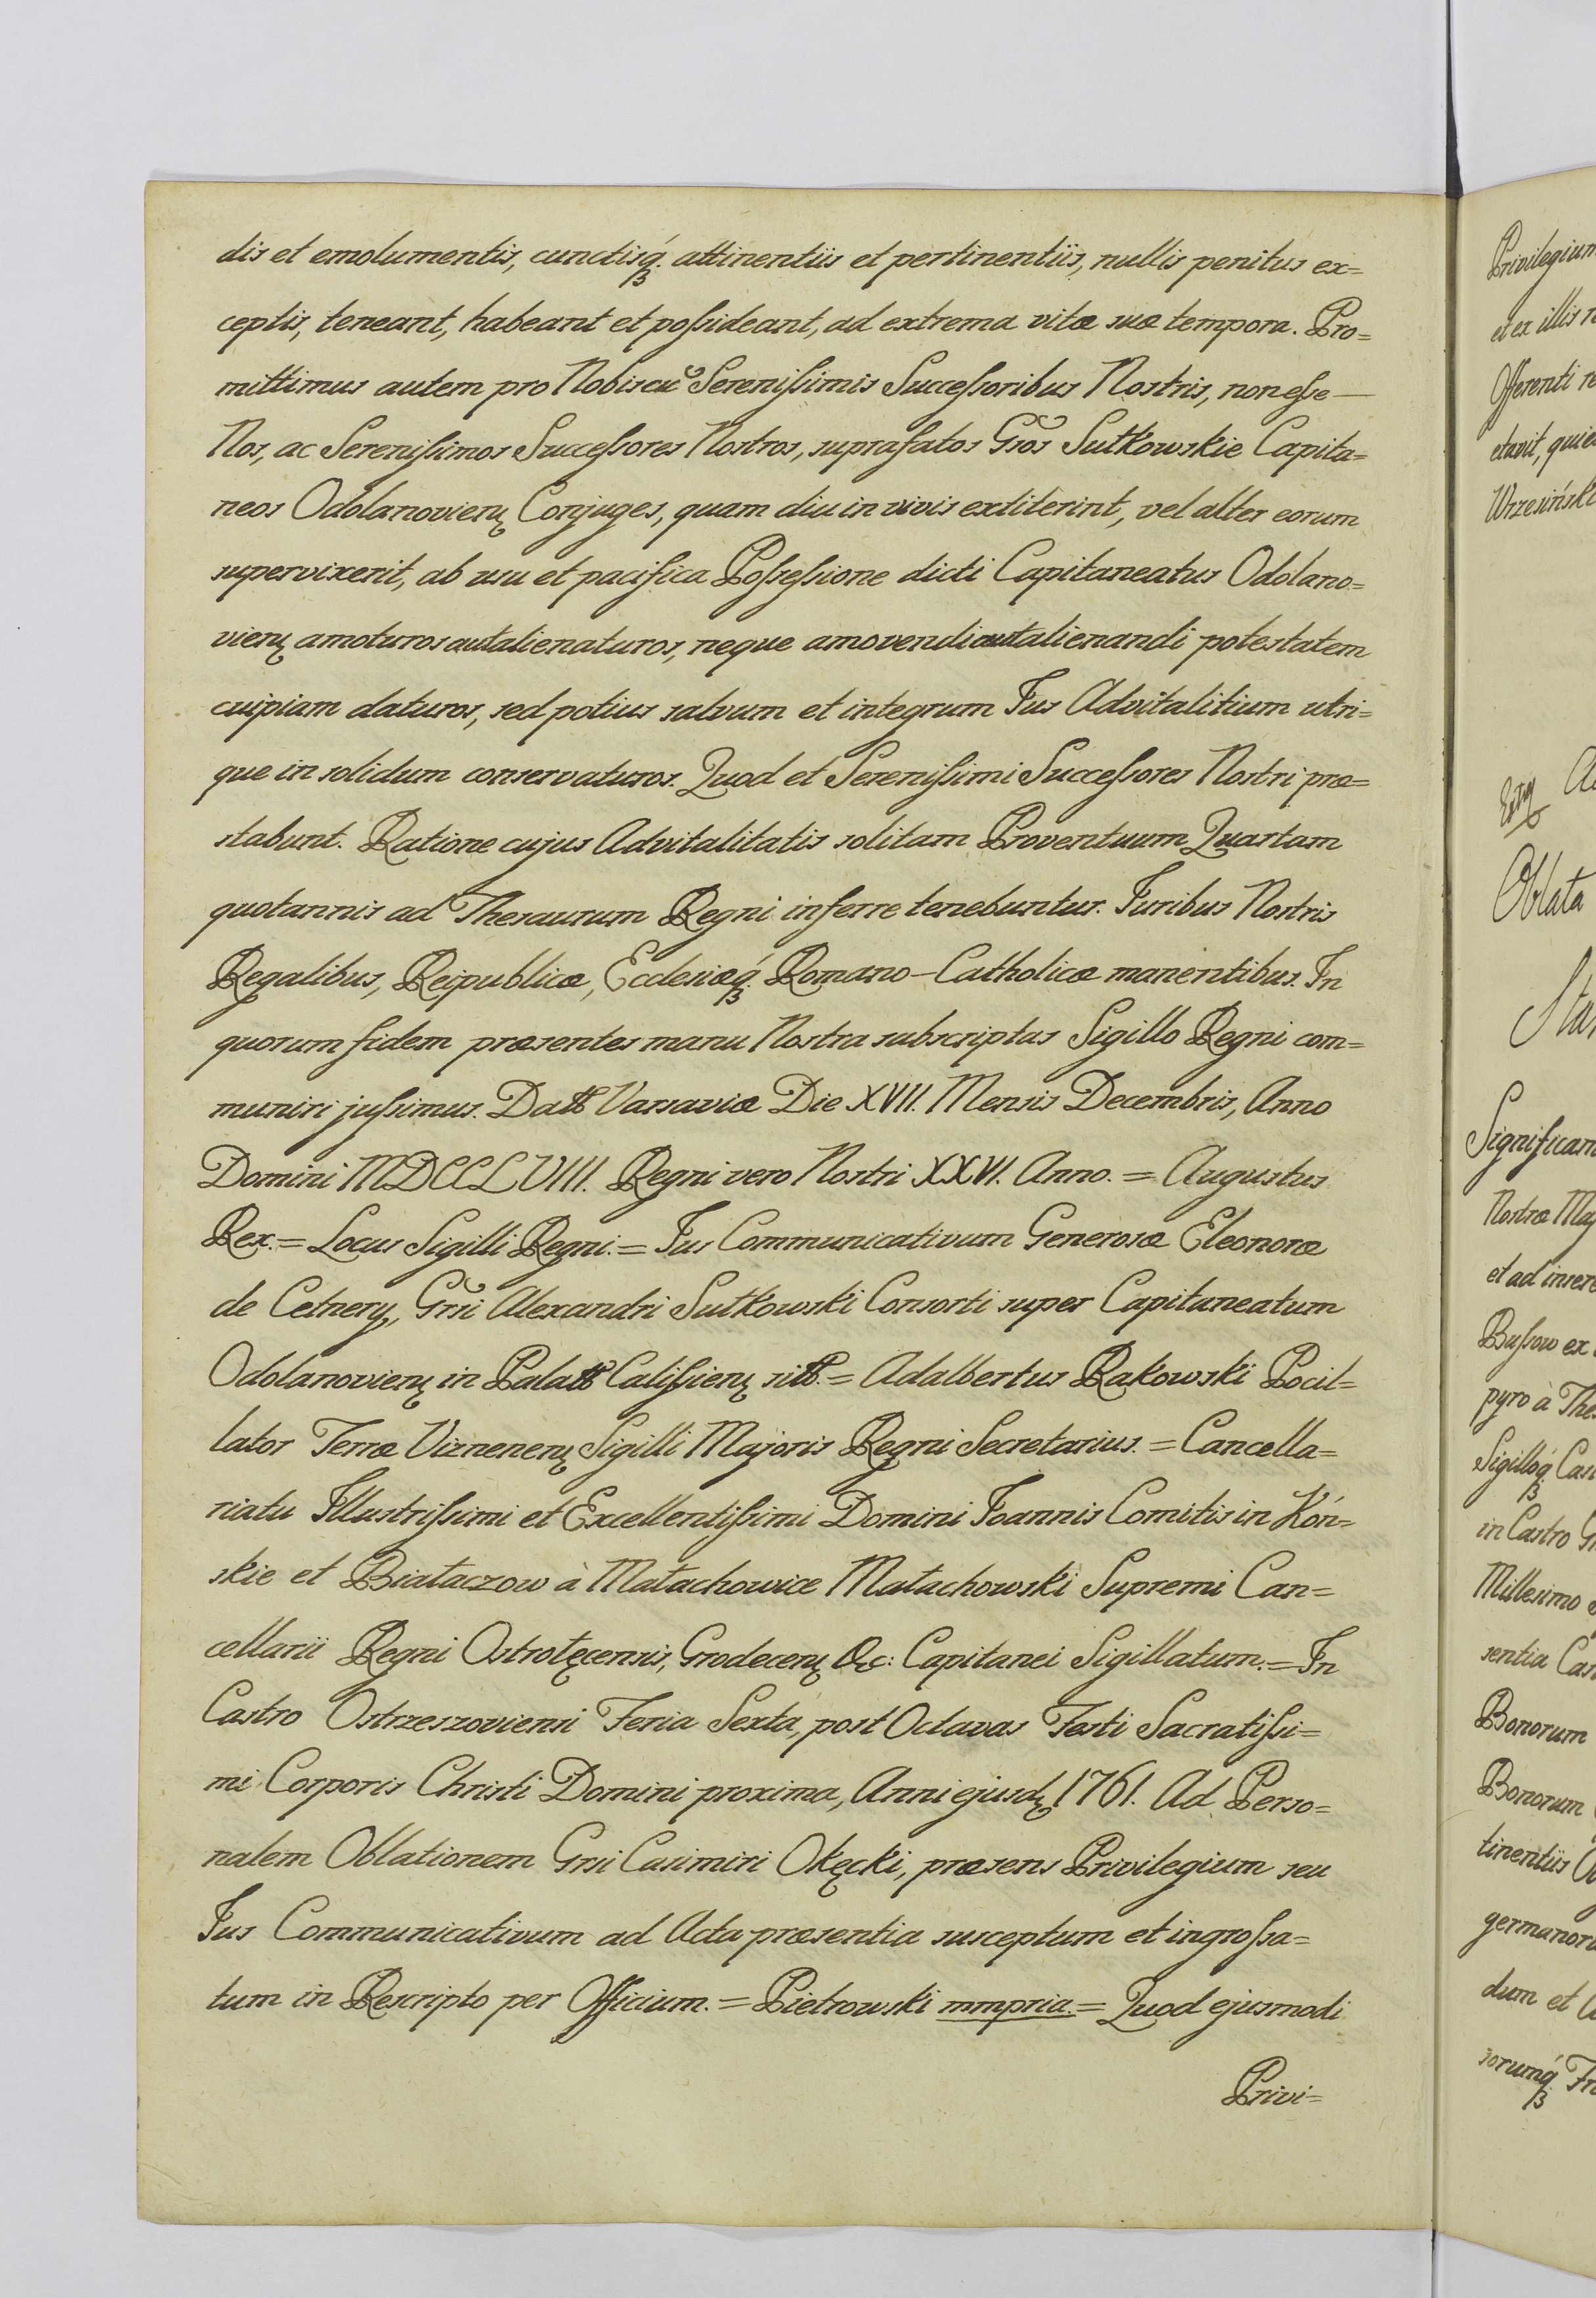 dis et emolumentis, cunctisq́ꝫ attinentiis et pertinentiis, nullis penitus ex=
ceptis, teneant, habeant et poſsideant, ad extrema vitæ suæ tempora. Pro=
mittimus autem pro Nobiscũ Sereniſsimis Succeſsoribus Nostris, non eſse —
Nos, ac Sereniſsimos Succeſsores Nostros, suprafatos Gr̃os Sułkowskie Capita=
neos Odolanovien̄ Conjuges, quam diu in vivis extiterint, vel alter eorum
supervixerit, ab usu et pacifica Poſseſsione dicti Capitaneatus Odolano=
vien̄ amoturos aut alienaturos, neque amovendi aut alienandi potestatem
cuipiam daturos, sed potius salvum et integrum Jus Advitalitium utri=
que in solidum conservaturos. Quod et Sereniſsimi Succeſsores Nostri præ=
stabunt. Ratione cujus Advitalitatis solitam Proventuum Quartam
quotannis ad Thesaurum Regni inferre tenebuntur. Juribus Nostris
Regalibus, Reipublicæ, Ecclesiæq́ꝫ Romano-Catholicæ manentibus. In
quorum fidem præsentes manu Nostra subscriptas Sigillo Regni com=
muniri juſsimus. Datt Varsaviæ Die XVII. Mensis Decembris, Anno
Domini MDCCLVIII. Regni vero Nostri XXVI. Anno. = Augustus
Rex. = Locus Sigilli Regni. = Jus Communicativum Generosæ Eleonoræ
de Cetnery, Gr̃si Alexandri Sułkowski Consorti super Capitaneatum
Odolanovien̄ in Palatt Caliſsien̄ sitt. = Adalbertus Rakowski Pocil=
lator Terræ Viznenen̄ Sigilli Majoris Regni Secretarius. = Cancella=
riatu Illustriſsimi et Excellentiſsimi Domini Joannis Comitis in Kóń=
skie et Białaczow à Małachowice Małachowski Supremi Can=
cellarii Regni Ostrołęcensis, Grodecen̄ &c: Capitanei Sigillatum. = In
Castro Ostrzeszoviensi Feria Sexta, post Octavas Festi Sacratiſsi=
mi Corporis Christi Domini proxima, Anni ejusd̄ 1761. Ad Perso=
nalem Oblationem Grsi Casimiri Okęcki, præsens Privilegium seu
Jus Communicativum ad Acta præsentia susceptum et ingroſsa=
tum in Rescripto per Officium. = Pietrowski mmpria. = Quod ejusmodi
Privi=
Privilegium
et ex illis
Offerenti
etavit,
Wrzesiński
Oblata
Nostræ
et ad
Buſsow ex
pyro à
Sigilloq́ꝫ
in Castro
Millesimo
sentia
Bonorum
Bonorum
tinentiis
dum et